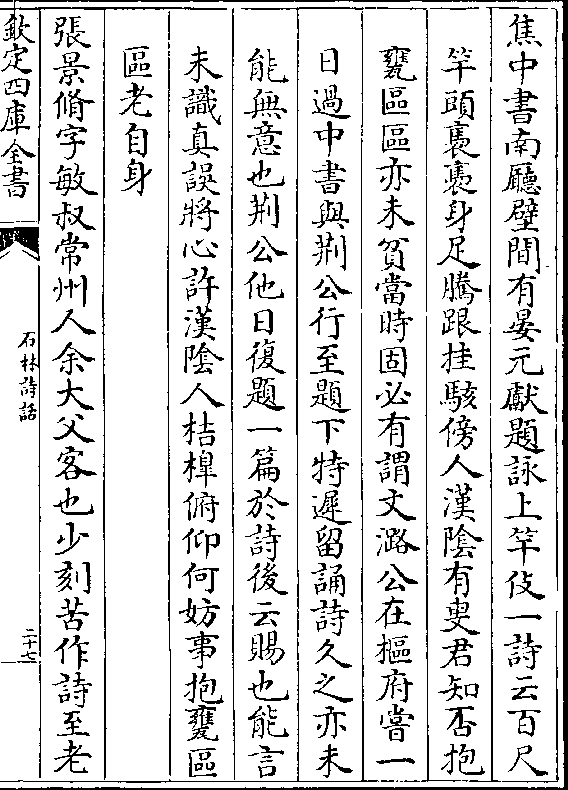 焦中書南廳壁間有晏元獻題詠上竿伎一詩云百尺
竿頭裊裊身足騰跟挂駭傍人漢陰有叟君知否抱
甕區區亦未貧當時固必有謂文潞公在樞府嘗一
日過中書與荆公行至題下特遲留誦詩久之亦未
能無意也荆公他日復題一篇於詩後云賜也能言
未識真誤將心許漢陰人桔橰俯仰何妨事抱甕區
區老自身
張景脩字敏叔常州人余大父客也少刻苦作詩至老
欽定四庫全書
石林詩話
二十七